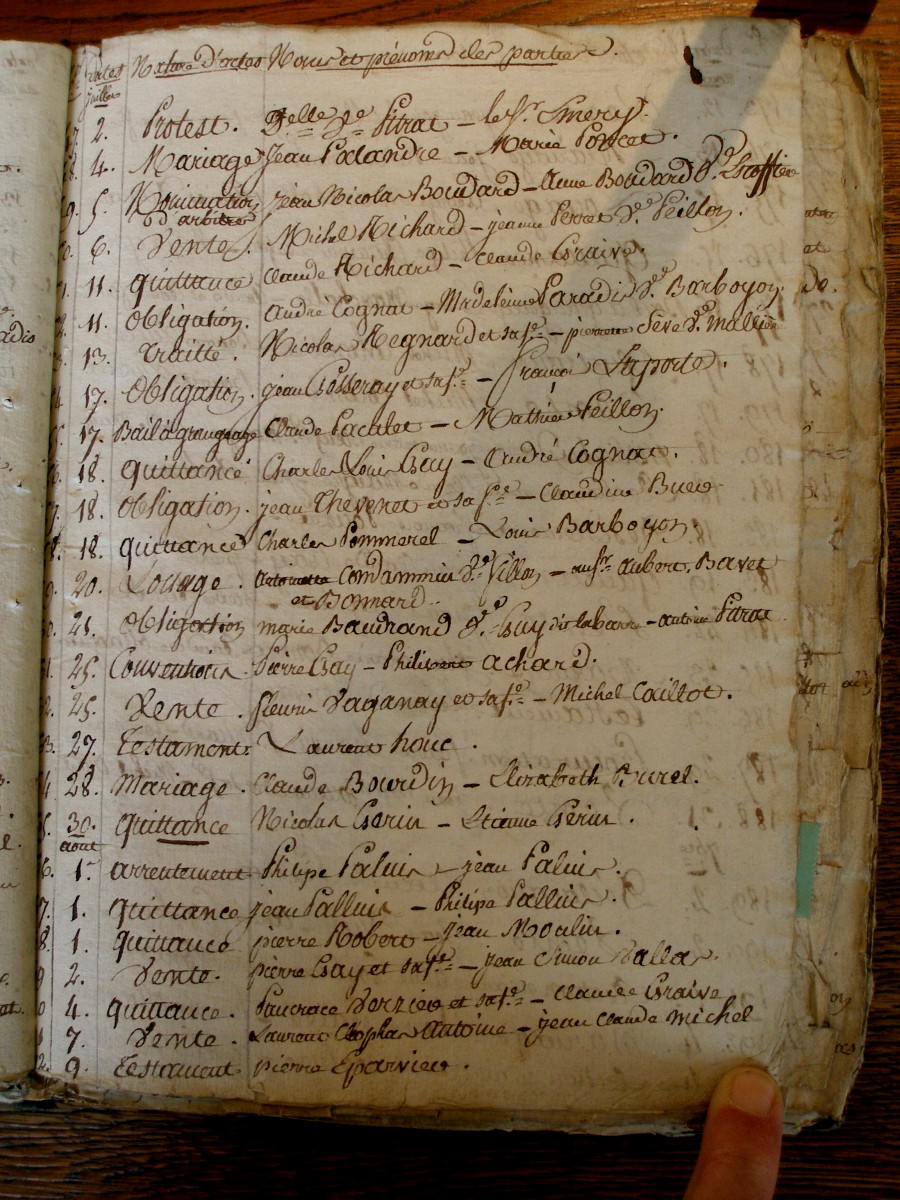 Dates Nature d'actes Noms et prénoms des parties.
juillet
2. Protest. Delle Pitrat – le Sr. Emery.
4. Mariage Jean Palandre – Marie Poncet.
5. Nomination d'arbitres jean Nicolas Boudard – Anne Boudard Ve. Escoffier
6. Vente. Michel Richard – jeanne Perret Ve. Peillon.
11. quittance Claude Richard – Claude Graive.
11. Obligation. andré Cognat – Madeleine Paradis Ve. Barboyon.
13. Traitté. Nicolas Regnard et sa fe. – pierrette Seve Ve. Mallier
17. Obligation. jean et sa fe. – françois Laporte.
17. Bail à grangeage Claude Pacalet – Mathieu Peillon.
18. quittance Charles Louis Gay – andré Cognat.
18. Obligation. jean Thevenet et sa fe. – Claudine
18. quittance Charles Pommerel – Louis Barboyon.
20. Louage. antoinette Condammin Ve. Villon – aubert, Bavet
et Bonnard.
21. Obligation marie Baudrand Ve. Guy dit labarre – antoine Pitrat
25. Conventions. Pierre Gay – Philibert achard.
25. Vente. fleurie Vaganay et sa fe. – Michel Caillot.
27. Testament. Laurent houe.
28. Mariage. Claude Bourdin – Elizabeth Burel.
30. quittance Nicolas Gerin – Etienne Gerin.
août
1er arrentement Philipe Paluis – jean Paluis.
1. quittance jean Palluis – Philipe Palluis.
1. quittance pierre Robert – jean Moulin.
2. Vente. pierre Gay et sa fe. – jean Simon Vallas.
4. quittance. Pancrace Verzieu et sa fe. – Claude Graive
7. Vente. Laurent Cleophas Antoine – jean Claude Michel
9. Testament pierre Eparvier.